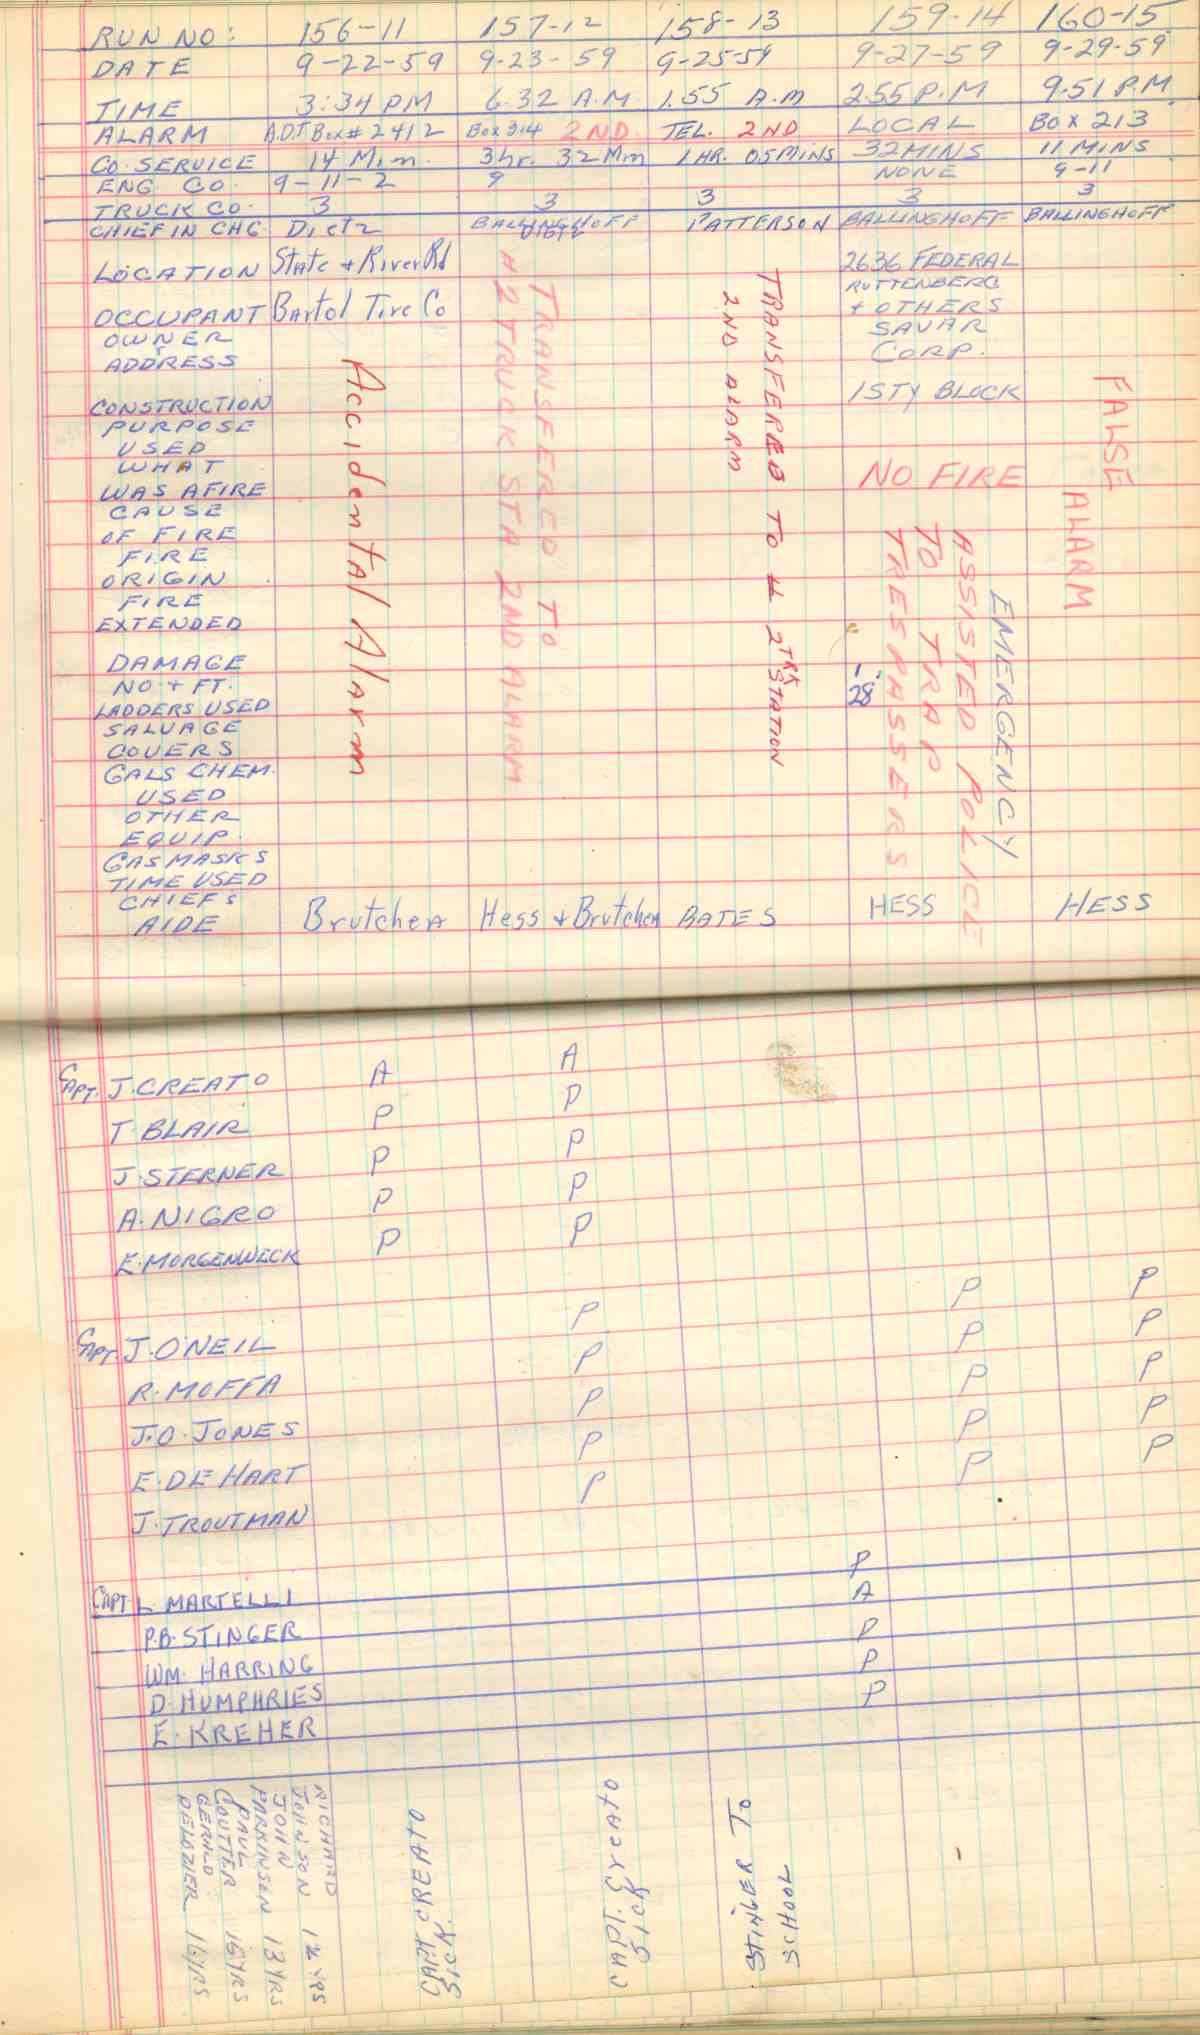 RUN NO: 156-11 157-12 158-13 159-14 160-15
DATE 9-22-59 9-23-59 9-25-59 9-27-59 9-29-59
TIME 3:34 PM 6.32 A.M. 1.55 A.M 2.55 P.M 9.51 P.M
ALARM A.D.T Box# 2412 Box 314 2ND TEL. 2ND LOCAL BOX 213
CO. SERVICE 14 Min. 3hr. 32 Min 1 HR. 05 MINS 32 MINS 11 MINS
ENG CO. 9-11-2 9 NONE 9-11
TRUCK CO. 3 3 3 3 3
CHIEF IN CHG Dietz BALLINGHOFF PATTERSON BALLINGHOFF BALLINGHOFF
LOCATION State + River Rd 2636 FEDERAL
RUTTENBERG
OCCUPANT Bartol Tire Co + OTHERS
OWNER SAVAR
& ADDRESS CORP.
CONSTRUCTION 1 STY BLOCK
PURPOSE
USED
WHAT
WAS AFIRE NO FIRE
CAUSE
OF FIRE
FIRE
ORIGIN
FIRE
EXTENDED
DAMAGE
NO. + FT. 1-
LADDERS USED 28'
SALVAGE
COVERS
GALS CHEM.
USED
OTHER
EQUIP.
GAS MASKS
TIME USED
CHIEFS
AIDE Brutchea Hess + Brutchea BATES HESS HESS
Accidental Alarm
TRANSFERED TO
#2 TRUCK STA 2ND ALARM
TRANSFERED TO 2 TRK STATION
2ND ALARM
EMERGENCY
ASSISTED POLICE
TO TRAP
TRESPASSERS
FALSE
ALARM
CAPT. J. CREATO A A
T. BLAIR P P
J. STERNER P P
A. NIGRO P P
E. MORGENWECK P P
CAPT. J. ONEIL P P P
R. MOFFA P P P
J.O. JONES P P P
E. DE HART P P P
J. TROUTMAN P P P
CAPT. L. MARTELLI P
P.B. STINGER A
WM. HARRING P
D. HUMPHRIES P
E. KREHER P
RICHARD
JOHNSON 12 YRS
JOHN
PARKINSON 13 YRS
PAUL
COUTTER 15 YRS
GERALD
DELOZIER 16 YRS
CAPT CREATO
SICK.
CAPT. Creato
SICK
STINGER TO
SCHOOL